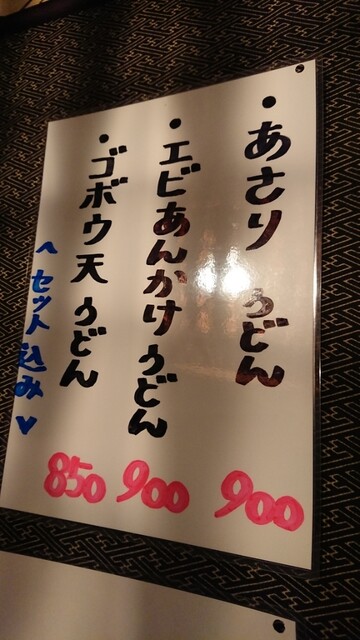 ・あさり うどん 900
・エビあんかけうどん 900
・ゴボウ天うどん 850
<セット込み>